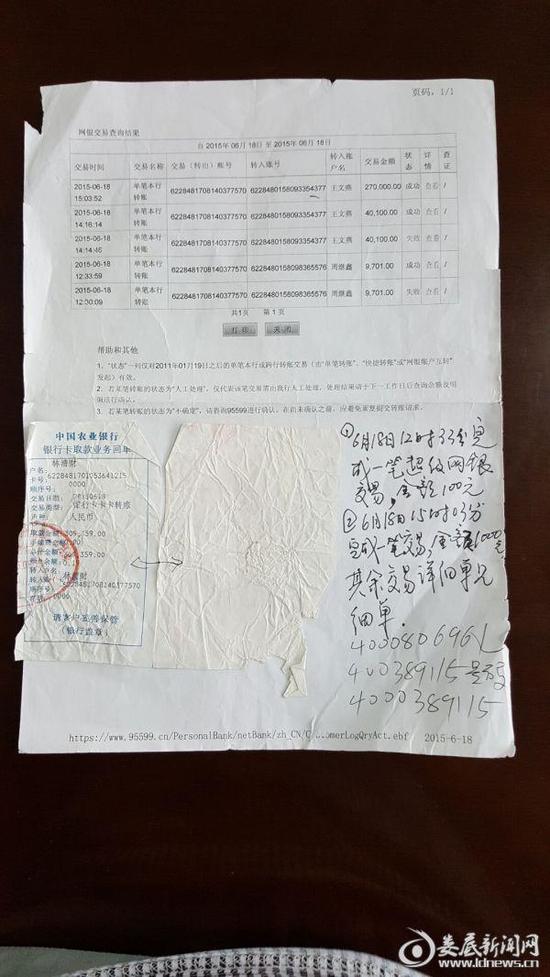 页码：1/1
网银交易查询结果
自 2015年 06月 18日 至 2015年 06月 18日
交易时间 交易名称 交易（转出）账号 转入账号 转入账户名 交易金额 状态 详情 查证
2015-06-18 15:03:52 单笔本行转账 6228481708140377570 6228480158093354377 王文燕 270,000.00 成功 查看 /
2015-06-18 14:16:14 单笔本行转账 6228481708140377570 6228480158093354377 王文燕 40,100.00 成功 查看 /
2015-06-18 14:14:46 单笔本行转账 6228481708140377570 6228480158093354377 王文燕 40,100.00 失败 查看 /
2015-06-18 12:33:59 单笔本行转账 6228481708140377570 6228480158098365576 周继鑫 9,701.00 成功 查看 /
2015-06-18 12:30:09 单笔本行转账 6228481708140377570 6228480158098365576 周继鑫 9,701.00 失败 查看 /
共1页 第 1 页
打 印 关 闭
帮助和其他
1、"状态"一列仅对2011年01月19日之后的单笔本行或跨行转账交易（由"单笔转账"、"快捷转账"或"网银账户互转"
发起）有效。
2、若某笔转账的状态为"人工处理"，仅代表该笔交易需由我行人工处理，处理结果请于下一工作日后查询余额或明
细进行确认。
3、若某笔转账的状态为"不确定"，请咨询95599进行确认。在尚未确认之前，应避免重复提交转账请求。
中国农业银行
银行卡取款业务回单
户名：
卡号：
顺序号：0000
交易日期：
交易类型：银行卡卡卡转账
人民币
转入户名：
6228481708140377570
0000
请客户妥善保管
（银行盖章）
①6月18日12时33分完
成一笔超级网银
交易，金额100元
②6月18日15时03分
完成一笔交易，金额1000元
其余交易详细单见
细单．
400389115
4000389115
https://www.95599.cn/PersonalBank/netBank/zh_CN/C...omerLogQryAct.ebf 2015-6-18
娄底新闻网
www.ldnews.cn